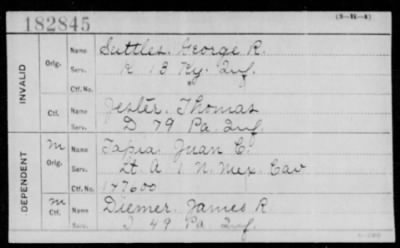 182845
(3-M-4)
INVALID
Orig. Name Suttles, George R.
Serv. K 13 Ky. Inf.
Ctf. No.
Ctf. Name Jesler, Thomas
Serv. D 79 Pa. Inf.
DEPENDENT
M Orig. Name Tapia, Juan C.
Serv. Lt. A 1 N. Mex. Cav
Ctf. No. 147600
M Ctf. Name Diemer, James R
Serv. I 49 Pa. Inf.